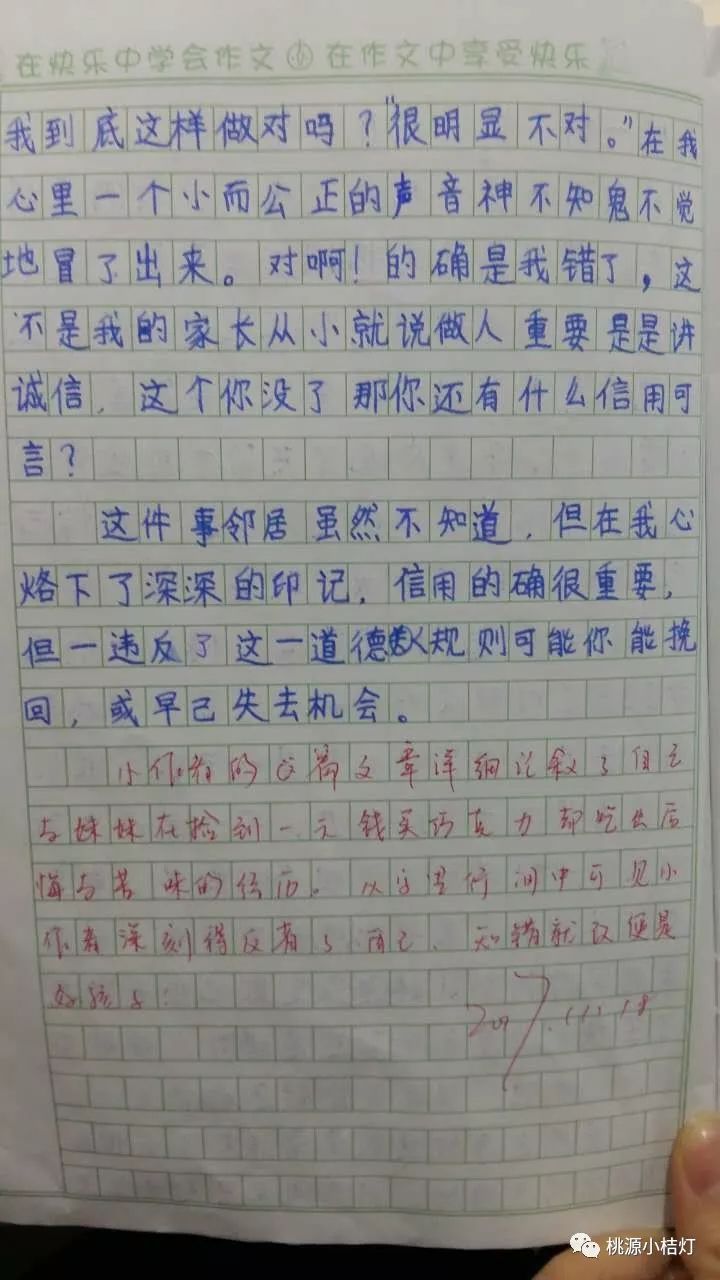 在快乐中学会作文 在作文中享受快乐
我到底这样做对吗？“很明显不对。”在我
心里一个小而公正的声音神不知鬼不觉
地冒了出来。对啊！的确是我错了，这
不是我的家长从小就说做人重要是是讲
诚信，这个你没了那你还有什么信用可
言？
这件事邻居虽然不知道，但在我心
烙下了深深的印记，信用的确很重要，
但一违反了这一道德规则可能你能挽
回，或早已失去机会。
小作者的这篇文章详细记叙了自己
与妹妹在捡到一元钱买巧克力却吃出后
悔与苦味的经历。从字里行间中可见小
作者深刻得反省了自己、知错就改便是
好孩子！
2017.11.18
桃源小桔灯